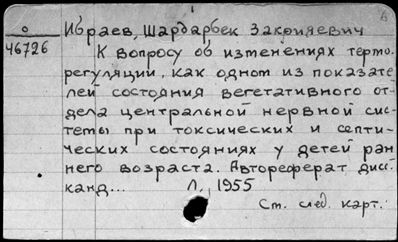 Ибраев, Шардарбек Закрияевич
о
46726
К вопросу об изменениях термо-
регуляции, как одном из показате-
лей состояния вегетативного от-
дела центральной нервной сис-
темы при токсических и септи-
ческих состояниях у детей ран
него возраста. Автореферат дисс.
канд... Л., 1955
См. след. карт.